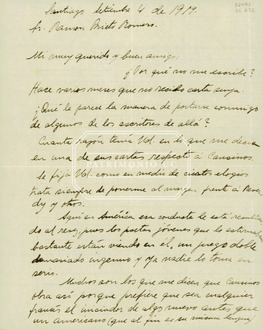 Santiago Setiembre 4 de 1919.
Sr. Ramon Prieto Romero.
Mi muy querido y buen amigo:
¿Por qué no me escribe?
Hace varios meses que no recibo carta suya.
¿Qué le parece la manera de portarse conmigo
de algunos de los escritores de allá?
Cuanta razón tenía Vd. en lo que me decía
en una de sus cartas respecto a Cansinos
Se fijó Vd. como en medio de cuatro elogios
trata siempre de ponerme al margen, frente a
dy y otros.
Aquí en América su conducta le está resultando
al revés, pues los poetas jóvenes que lo estimaban
bastante están viendo en él, un juego doble
demasiado ingenuo y ya nadie lo toma en
serio.
Muchos son los que me dicen que Cansinos
obra así porque prefiere que sea cualquier
francés el iniciador de algo nuevo antes que
un americano (que al fin es su misma lengua)